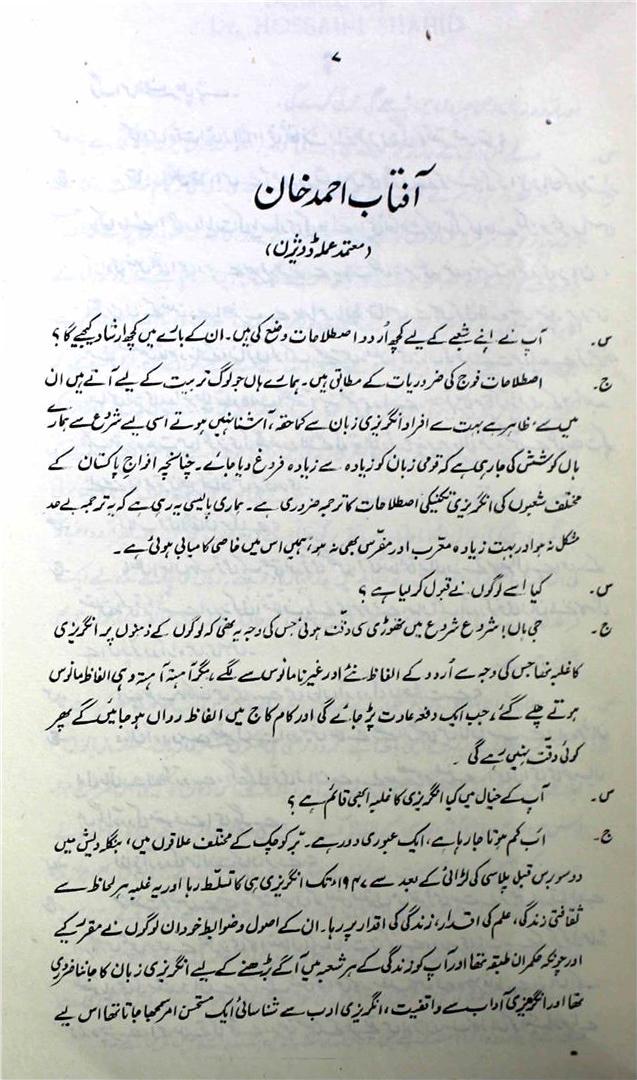 ۷
آفتاب احمد خان
(معتمد عملہ ڈویژن)
س۔ آپ نے اپنے شعبے کے لیے کچھ اُردو اصطلاحات وضع کی ہیں۔ ان کے بارے میں کچھ ارشاد کیجیے گا؟
ج۔ اصطلاحات فوج کی ضروریات کے مطابق ہیں۔ ہمارے ہاں جو لوگ تربیت کے لیے آتے ہیں ان
میں سے ظاہر ہے بہت سے افراد انگریزی زبان سے کماحقہ، آشنا نہیں ہوتے اسی لیے شروع سے ہمارے
ہاں کوشش کی جا رہی ہے کہ قومی زبان کو زیادہ سے زیادہ فروغ دیا جائے۔ چنانچہ افواجِ پاکستان کے
مختلف شعبوں کی انگریزی تکنیکی اصطلاحات کا ترجمہ ضروری ہے۔ ہماری پالیسی یہ رہی ہے کہ یہ ترجمہ بے حد
مشکل نہ ہو اور بہت زیادہ معرّب اور مفرّس بھی نہ ہو، ہمیں اس میں خاصی کامیابی ہوئی ہے۔
س۔ کیا اسے لوگوں نے قبول کر لیا ہے؟
ج۔ جی ہاں! شروع شروع میں تھوڑی سی دقّت ہوئی جس کی وجہ یہ تھی کہ لوگوں کے ذہنوں پر انگریزی
کا غلبہ تھا جس کی وجہ سے اُردو کے الفاظ نئے اور غیر مانوس سے لگے، مگر آہستہ آہستہ وہی الفاظ مانوس
ہوتے چلے گئے، جب ایک دفعہ عادت پڑ جائے گی اور کام کاج میں الفاظ رواں ہو جائیں گے پھر
کوئی دقّت نہیں رہے گی۔
س۔ آپ کے خیال میں کیا انگریزی کا غلبہ ابھی قائم ہے؟
ج۔ اب کم ہوتا جا رہا ہے، ایک عبوری دور ہے۔ برِّکوچک کے مختلف علاقوں میں، بنگلہ دیش میں
دو سو برس قبل پلاسی کی لڑائی کے بعد سے ۱۹۴۷ء تک انگریزی ہی کا تسلّط رہا اور یہ غلبہ ہر لحاظ سے
ثقافتی زندگی، علم کی اقدار، زندگی کی اقدار پر رہا۔ ان کے اصول و ضوابط خود ان لوگوں نے مقرر کیے
اور چونکہ حکمران طبقہ تھا اور آپ کو زندگی کے ہر شعبہ میں آگے بڑھنے کے لیے انگریزی زبان کا جاننا ضروری
تھا اور انگریزی آداب سے واقفیت، انگریزی ادب سے شناسائی ایک مستحسن امر سمجھا جاتا تھا اس لیے